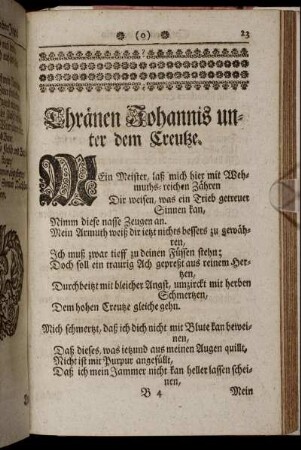 (o) 23
Thränen Johannis un-
ter dem Creutze.
MEin Meister, laß mich hier mit Weh-
muths-reichen Zähren
Dir weisen, was ein Trieb getreuer
Sinnen kan,
Nimm diese nasse Zeugen an.
Mein Armuth weiß dir ietzt nichts bessers zu gewäh-
ren,
Ich muß zwar tieff zu deinen Füssen stehn;
Doch soll ein traurig Ach gepreßt aus reinem Her-
tzen,
Durchbeitzt mit bleicher Angst, umzirckt mit herben
Schmertzen,
Dem hohen Creutze gleiche gehn.
Mich schmertzt, daß ich dich nicht mit Blute kan bewei-
nen,
Daß dieses, was ietzund aus meinen Augen quillt,
Nicht ist mit Purpur angefüllt,
Daß ich mein Jammer nicht kan heller lassen schei-
nen,
B 4 Mein